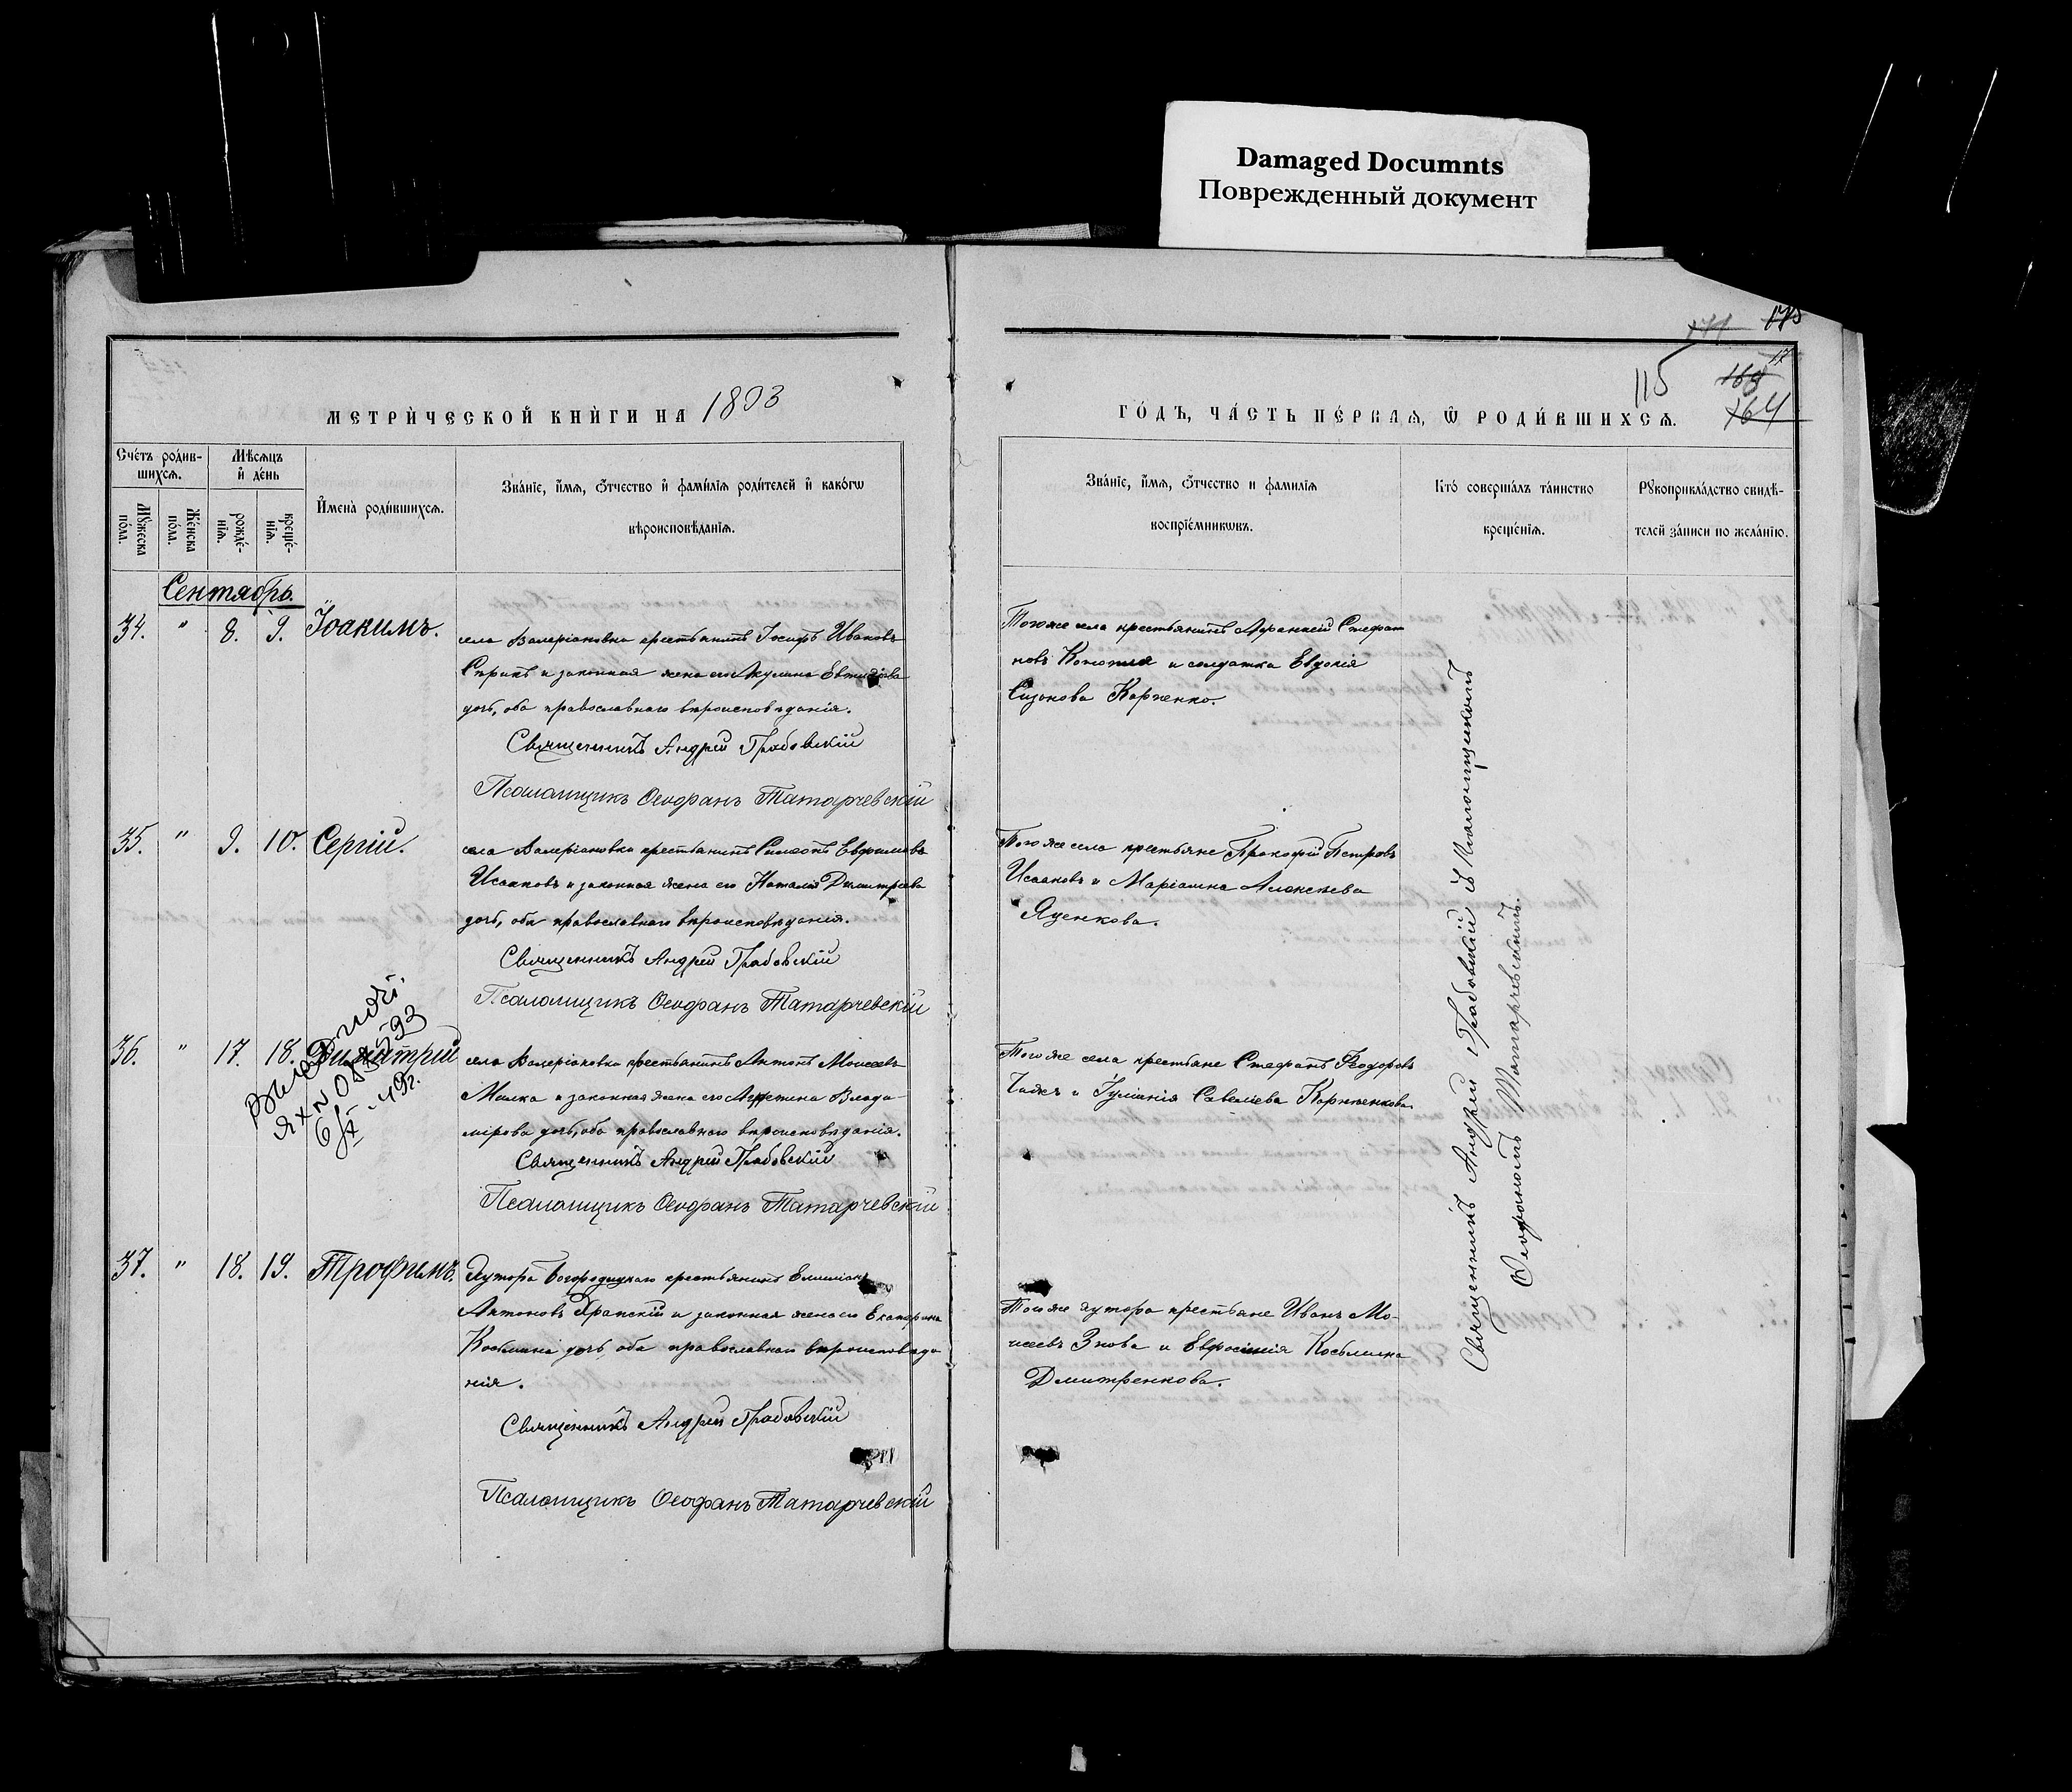 Damaged Documnts
Поврежденный документ
175
115
168
164
МЕТРИ́ЧЕСКОЙ КНИ́ГИ НА 1893
ГО́ДЪ, ЧА́СТЬ ПЕ́РВАЯ, Ѿ РОДИ́ВШИХСЯ.
Сче́тъ роди́в-
шихся.
Мѣ́сяцъ
и̂ де́нь
Му́жеска
по́ла.
Же́нска
по́ла.
рожде́-
нія.
креще́-
нія.
Имена̀ роди́вшихся.
Зва́ніе, и́мя, ѻ́тчество и̂ фами́лія роди́телей и̂ како́гѡ
вѣроисповѣ́данія.
Зва́ніе, и́мя, ѻ́тчество и фами́лія
воспріе́мникѡвъ.
Кто̀ соверша́лъ та́инство
креще́нія.
Рꙋкоприкла́дство свидѣ́-
телей за́писи по жела́нію.
Сентябрь.
34. " 8. 9. Іоакимъ.
села Валеріановки крестьянинъ Іосифъ Ивановъ
Спринъ и законная жена его Акулина
дочь, оба православнаго вѣроисповѣданія.
Священникъ Андрей Грабовскій
Псаломщикъ Ѳеофанъ Татарчевскій
Того же села крестьянинъ Стефа
новъ Конопля и солдатка Евдокія
Сизонова Карпенко.
35. " 9. 10. Сергій.
села Валеріановки крестьянинъ Симеонъ Евфиміевъ
Исааковъ и законная жена его Наталія Димитріева
дочь, оба православнаго вѣроисповѣданія.
Священникъ Андрей Грабовскій
Псаломщикъ Ѳеофанъ Татарчевскій
Того же села крестьяне Прокофій Петровъ
Исааковъ и Маріамна Алексѣева
Яценкова.
36. " 17. 18. Димитрій
села Валеріановки крестьянинъ Антонъ Моисеевъ
Малка и законная жена его Влади-
мірова дочь, оба православнаго вѣроисповѣданія.
Священникъ Андрей Грабовскій
Псаломщикъ Ѳеофанъ Татарчевскій
Того же села крестьяне Стефанъ Ѳеодоровъ
и Іуліанія Савельева Корниенкова
37. " 18. 19. Трофимъ.
Хутора Богородицкаго крестьянинъ Емиліанъ
Антоновъ Храпскій и законная жена его Екатерина
Косьмина дочь, оба православнаго вѣроисповѣда
нія.
Священникъ Андрей Грабовскій
Псаломщикъ Ѳеофанъ Татарчевскій
Того же хутора крестьяне Иванъ Мо-
исеевъ Знова и Евфросинія Косьмина
Дмитренкова.
Священникъ Андрей Грабовскій съ Псаломщикомъ
Ѳеофаномъ Татарчевскимъ.